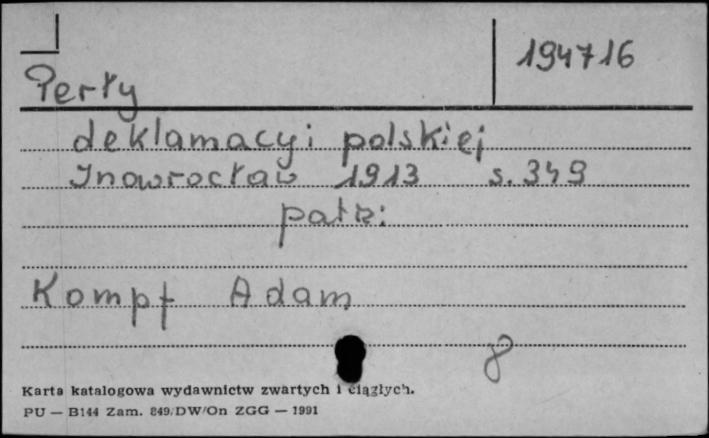 194716
Perły
deklamacyi polskiej
Inowrocław 1913 s. 349
patrz:
Kompf Adam
8
Karta katalogowa wydawnictw zwartych i ciągłych.
PU — B144 Zam. 849/DW/On ZGG — 1991